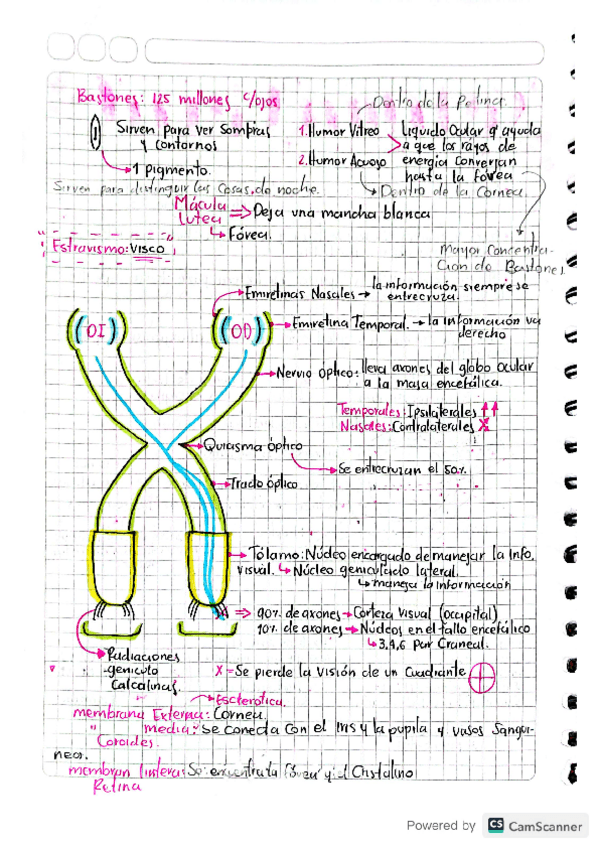 Bastones: 125 millones c/ojos
Sirven para ver sombras
y contornos
1 pigmento.
Sirven para distinguir las cosas de noche.
Dentro de la Retina.
1. Humor Vítreo
2. Humor Acuoso
Liquido Ocular q' ayuda
a que los rayos de
energía converjan
hasta la fóvea
Dentro de la Cornea.
Mayor Concentra-
cion de Bastones.
Mácula
Lutea ⇒ Deja una mancha blanca
Fóvea.
Estravismo: VISCO
Emiretinas Nasales → la información siempre se
entrecruza.
OI
OD
Emiretina Temporal. → la información va
derecho
Nervio óptico: lleva axones del globo ocular
a la masa encefálica.
Temporales: Ipsilaterales ↑↑
Nasales: Contralaterales X
Quiasma óptico
Se entrecruzan el 50%.
Tracto óptico
Tálamo: Núcleo encargado de manejar la Info.
visual. Núcleo geniculado lateral.
maneja la información
⇒ 90% de axones → Corteza Visual (occipital)
10% de axones → Núcleos en el tallo encefálico
3,4,6 Par Craneal.
Radiaciones
geniculo
Calcalinas.
X = Se pierde la Visión de un Cuadrante
Esclerotica.
membrana Externa: Cornea.
" media: Se conecta con el Iris y la pupila y vasos Sangui-
Coroides.
neos.
membran Interna: Se encuentra la fóvea y el Cristalino
Retina
Powered by CS CamScanner